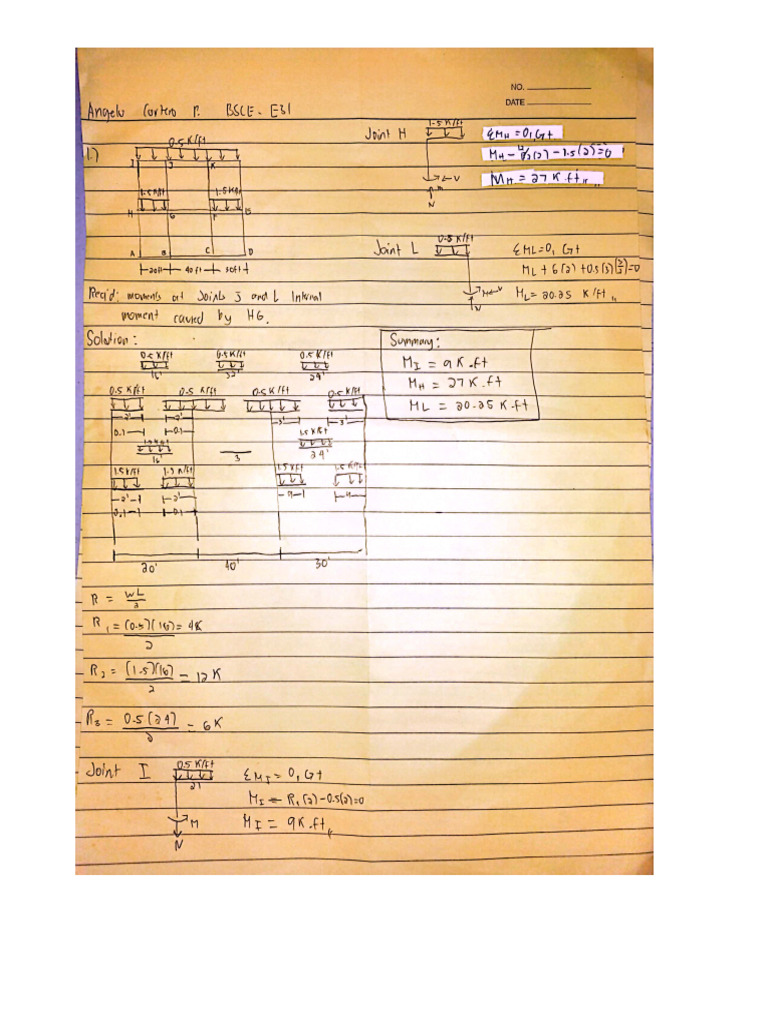 NO.
DATE
Angelo Cortero P. BSCE - E31
1.)
0.5 K/ft
I J K L
1.5 K/ft 1.5 K/ft
H G F E
A B C D
20ft 40ft 30ft
Req'd: moments at Joints J and L Internal
moment caused by HG.
Solution:
0.5 K/ft 0.5 K/ft 0.5 K/ft
16' 32' 24'
0.5 K/ft 0.5 K/ft 0.5 K/ft 0.5 K/ft
2' 2' 3' 3'
0.1 0.1
1.5 K/ft 1.5 K/ft
16' 3 24'
1.5 K/ft 1.5 K/ft 1.5 K/ft 1.5 K/ft
2' 2'
0.1 0.1
20' 40' 30'
R = WL/2
R1 = (0.5)(16)/2 = 4K
R2 = (1.5)(16)/2 = 12 K
R3 = 0.5(24)/2 = 6K
Joint I 0.5 K/ft
2'
M
N
ΣMI = 0, G+
MI = R1(2) - 0.5(2) = 0
MI = 9K.ft,,
Joint H 1.5 K/ft
V
N
ΣMH = 0, G+
MH = 27 K.ft,,
Joint L 0.5 K/ft
N
ΣML = 0, G+
ML + 6(2) + 0.5(3)(3/2) = 0
ML = 20.25 K/ft,,
Summary:
MI = 9K.ft
MH = 27 K.ft
ML = 20.25 K.ft